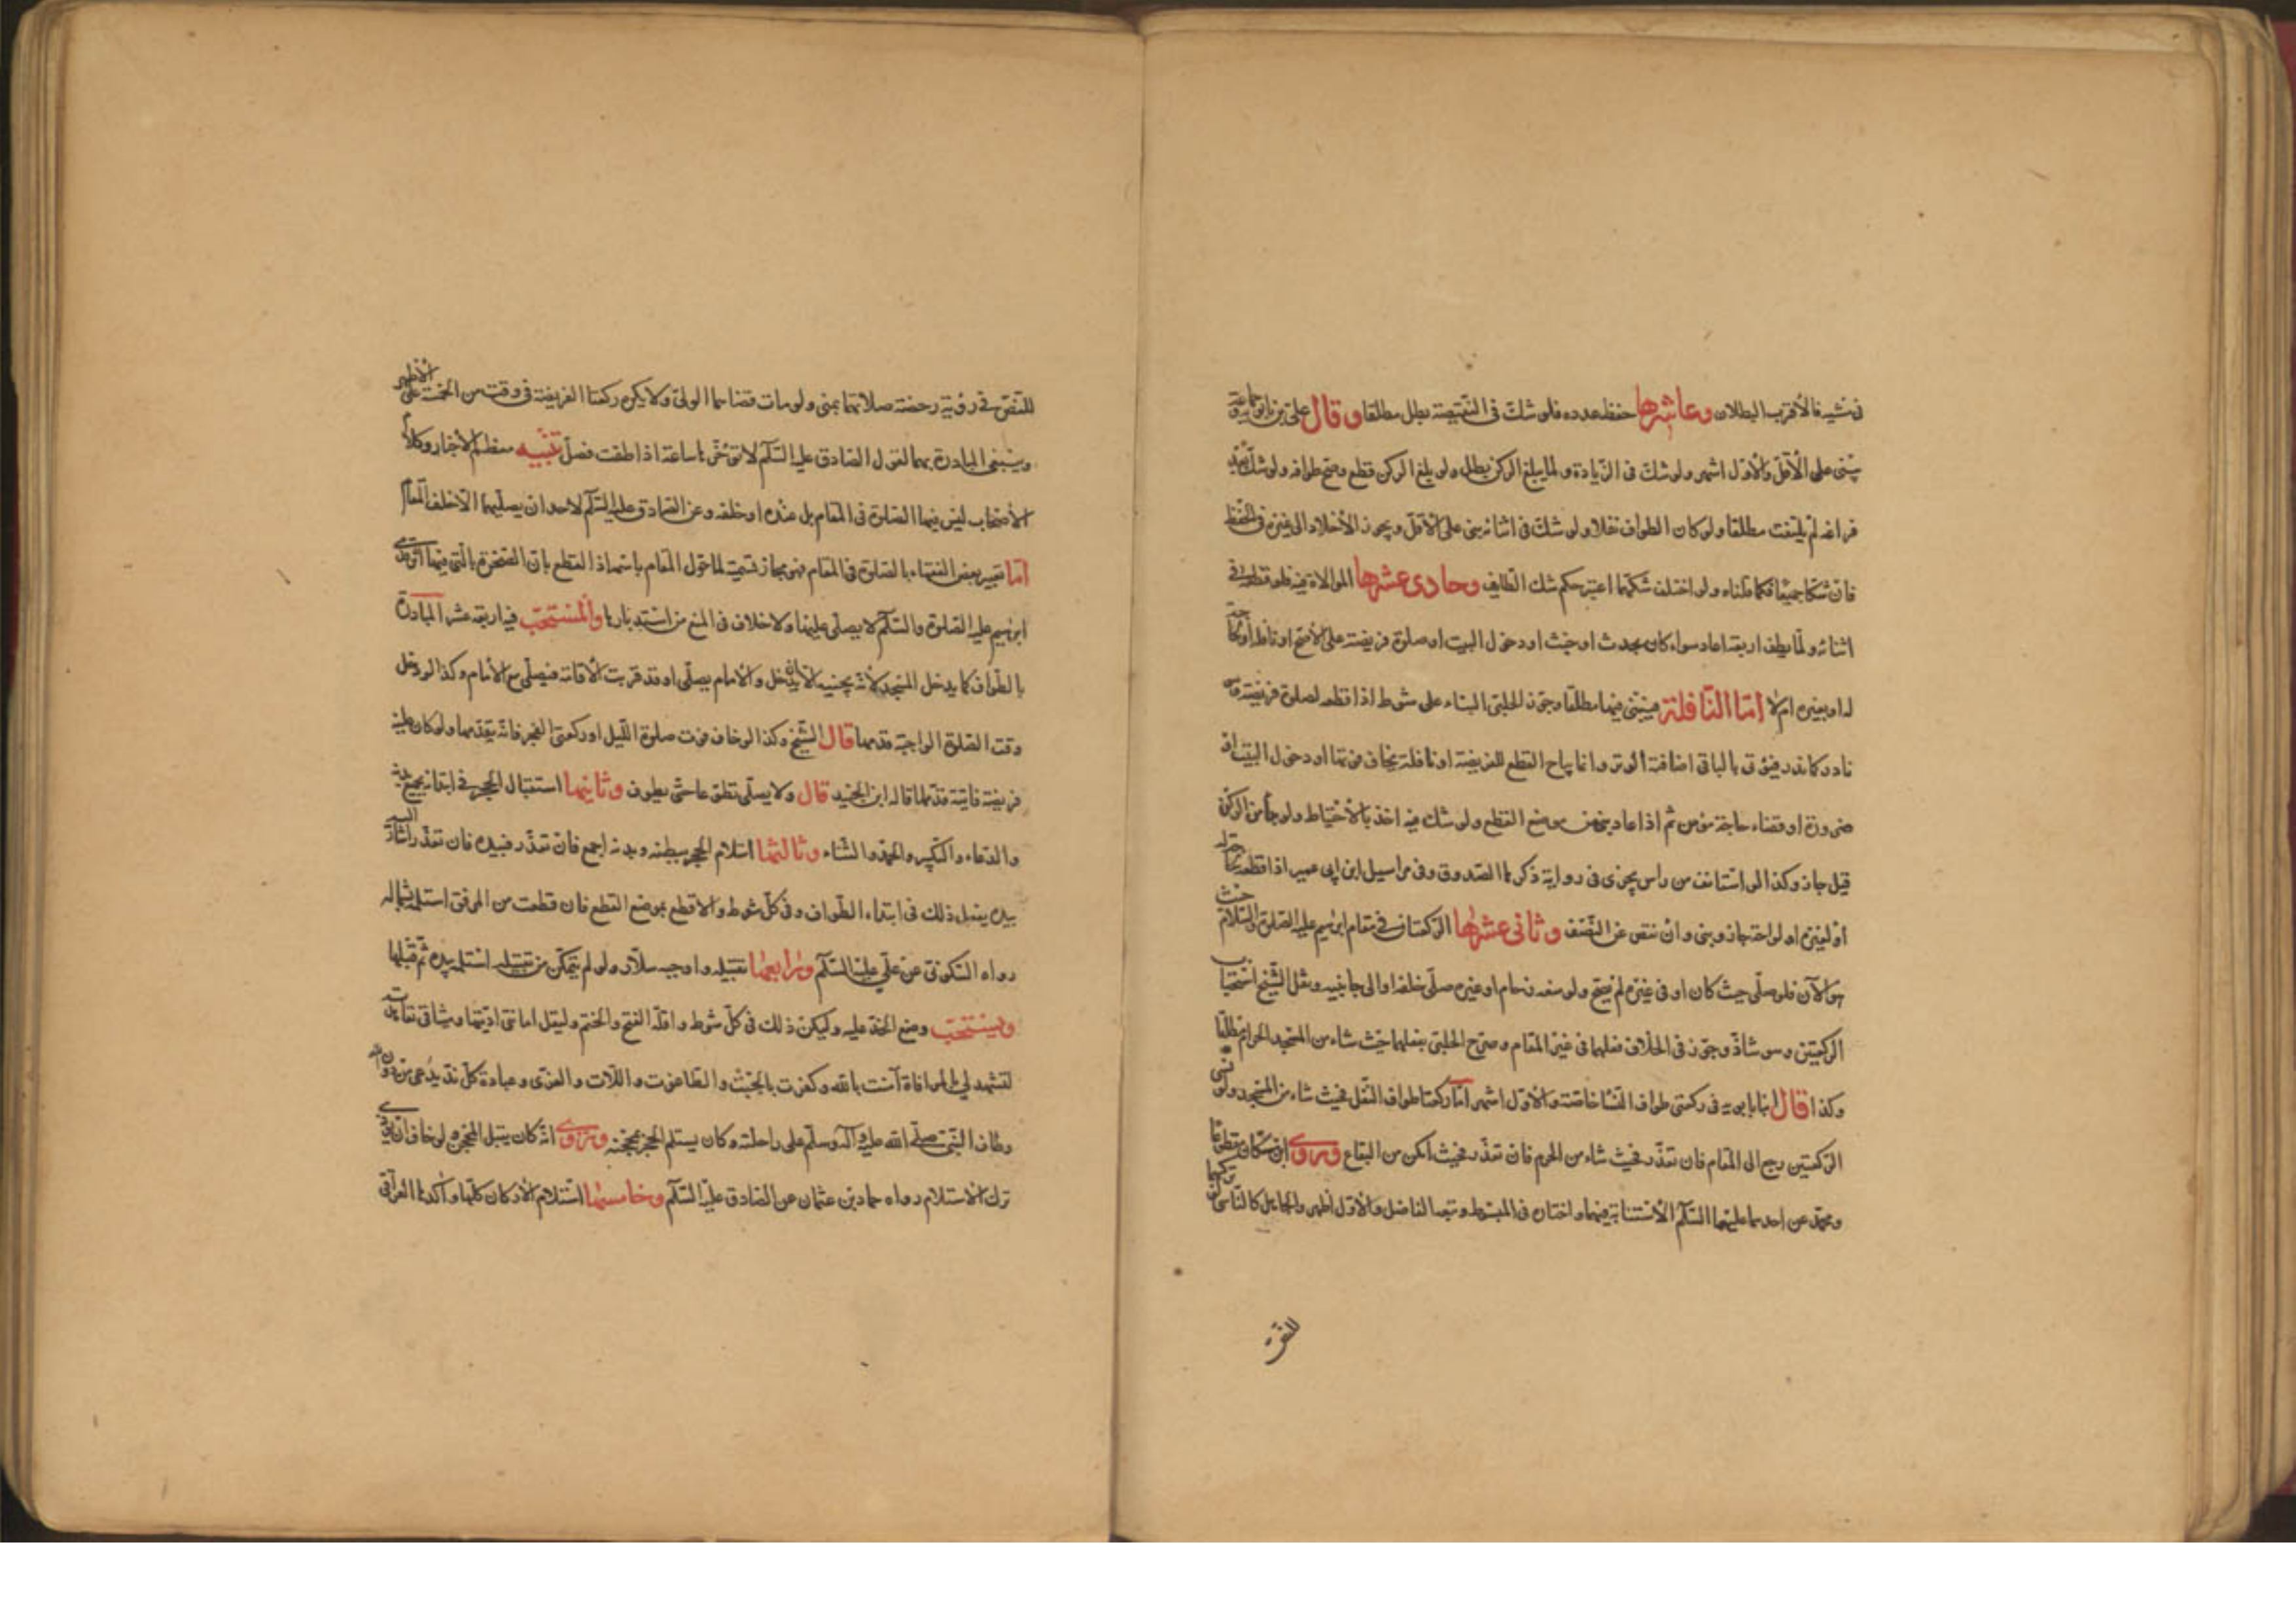 في مشيه فالأقرب البطلان وعاشرها حفظ عدده فلو شك في النقيصة بطل مطلقا وقال علي بن بابويه وجماعة
يبنى على الأقل والأول اشهر ولو شك في الزيادة ولما يبلغ الركن بطل ولو بلغ الركن قطع وصح طوافه ولو شك بعد
فراغه لم يلتفت مطلقا ولو كان الطواف نفلا ولو شك في اثنائه بنى على الأقل ويجوز الأخلاد الى غيره في الحفظ
فان شكا جميعا فكما قلناه ولو اختلف شكهما اعتبر حكم شك الطايف وحادى عشرها الموالاة فيه فلو قطعه في
اثنائه ولما يطف اربعة اعاد سواء كان بحدث او خبث او دخول البيت او صلوة فريضة على الأصح او نافلة او لحاجة
له او لغيره ام لا اما النافلة فيبنى فيها مطلقا وجوز الحلبي البناء على شوط اذا قطعه لصلوة فريضة وهو
نادر كما ندر فتوى بالباقي اضافة الوتر وانما يباح القطع للفريضة او نافلة يخاف فوتها او دخول البيت او
ضرورة او قضاء حاجة مؤمن ثم اذا عاد بنى من موضع القطع ولو شك فيه اخذ بالأحتياط ولو بدأ من الركن
قيل جاز وكذا لو استانف من راس يجزى في رواية ذكرها الصدوق وفي مراسيل ابن ابي عمير اذا قطعه لحاجة له
او لغيره او لراحة جاز وبنى وان نقص عن النصف وثاني عشرها الركعتان في مقام ابرهيم عليه الصلوة والسلام حيث
هو الآن فلو صلى حيث كان او في غيره لم يصح ولو منعه زحام او غيره صلى خلفه او الى جانبيه ونقل الشيخ استحباب
الركعتين وهو شاذ وجوز في الخلاف فعلهما في غير المقام وصرح الحلبي بفعلهما حيث شاء من المسجد الحرام مطلقا
وكذا قال ابنا بابويه في ركعتي طواف النسا خاصة والأول اشهر اما ركعتا طواف النفل فحيث شاء من المسجد ولو نسي
الركعتين رجع الى المقام فان تعذر فحيث شاء من الحرم فان تعذر فحيث امكن من البقاع وروى ابن مسكان مقطوعا
ومحمد عن احدهما عليهما السلام الأستنابة فيهما واختاره في المبسوط وتبعه الفاضل والأول اظهر والجاهل كالناسي تركهما
للنص
للنص في رؤية رخصة صلاتهما بمنى ولو مات قضاهما الولي ولا يكره ركعتا الفريضة في وقت من الخمسة على الأظهر
وينبغي المبادرة بهما لقول الصادق عليه السلام لا تؤخرها ساعة اذا طفت فصل تنبيه معظم الأخبار وكلام
الأصحاب ليس فيهما الصلوة في المقام بل عنده او خلفه وعن الصادق عليه السلام لاحد ان يصليهما الا خلف المقام
اما تعبير بعض الفقهاء بالصلوة في المقام فهو مجاز تسمية لما حول المقام باسمه اذ القطع بان الصخرة التي فيها اثر قدمي
ابرهيم عليه الصلوة والسلام لا يصلى عليها ولا خلاف في المنع من استدبارها والمستحب فيه اربعة عشر المبادرة
بالطواف كما يدخل المسجد لأنه تحيته الا ان يدخل والأمام يصلي او قد قربت الأقامة فيصلي مع الأمام وكذا لو دخل
وقت الصلوة الواجبة قدمها قال الشيخ وكذا لو خاف فوت صلوة الليل او ركعتي الفجر فانه يقدمها ولو كان عليه
فريضة فايتة قدمها قاله ابن الجنيد قال ولا يصلى تطوعا حتى يطوف وثانيها استقبال الحجر في ابتدائه بجميع بدنه
والدعاء والتكبير والحمد والثناء وثالثها استلام الحجر ببطنه وبدنه اجمع فان تعذر فبيده فان تعذر اشار اليه
بيده يفعل ذلك في ابتداء الطواف وفي كل شوط والاقطع بموضع القطع فان قطعت من المرفق استلم بشماله
رواه السكوني عن علي عليه السلام ورابعها تقبيله واوجبه سلار ولو لم يتمكن من تقبيله استلمه بيده ثم قبلها
ويستحب وضع الخد عليه وليكن ذلك في كل شوط واقله الفتح والختم وليقل امانتي اديتها وميثاقي تعاهدته
لتشهد لي بالموافاة آمنت بالله وكفرت بالجبت والطاغوت واللات والعزى وعبادة كل ند يدعى من دون الله
وطاف النبي صلى الله عليه وآله وسلم على راحلته وكان يستلم الحجر بمحجنه وروى انه كان يقبل المحجن ولو خاف ان يؤذي
ترك الاستلام رواه حماد بن عثمان عن الصادق عليه السلام وخامسها استلام الأركان كلها وآكدها العراقي